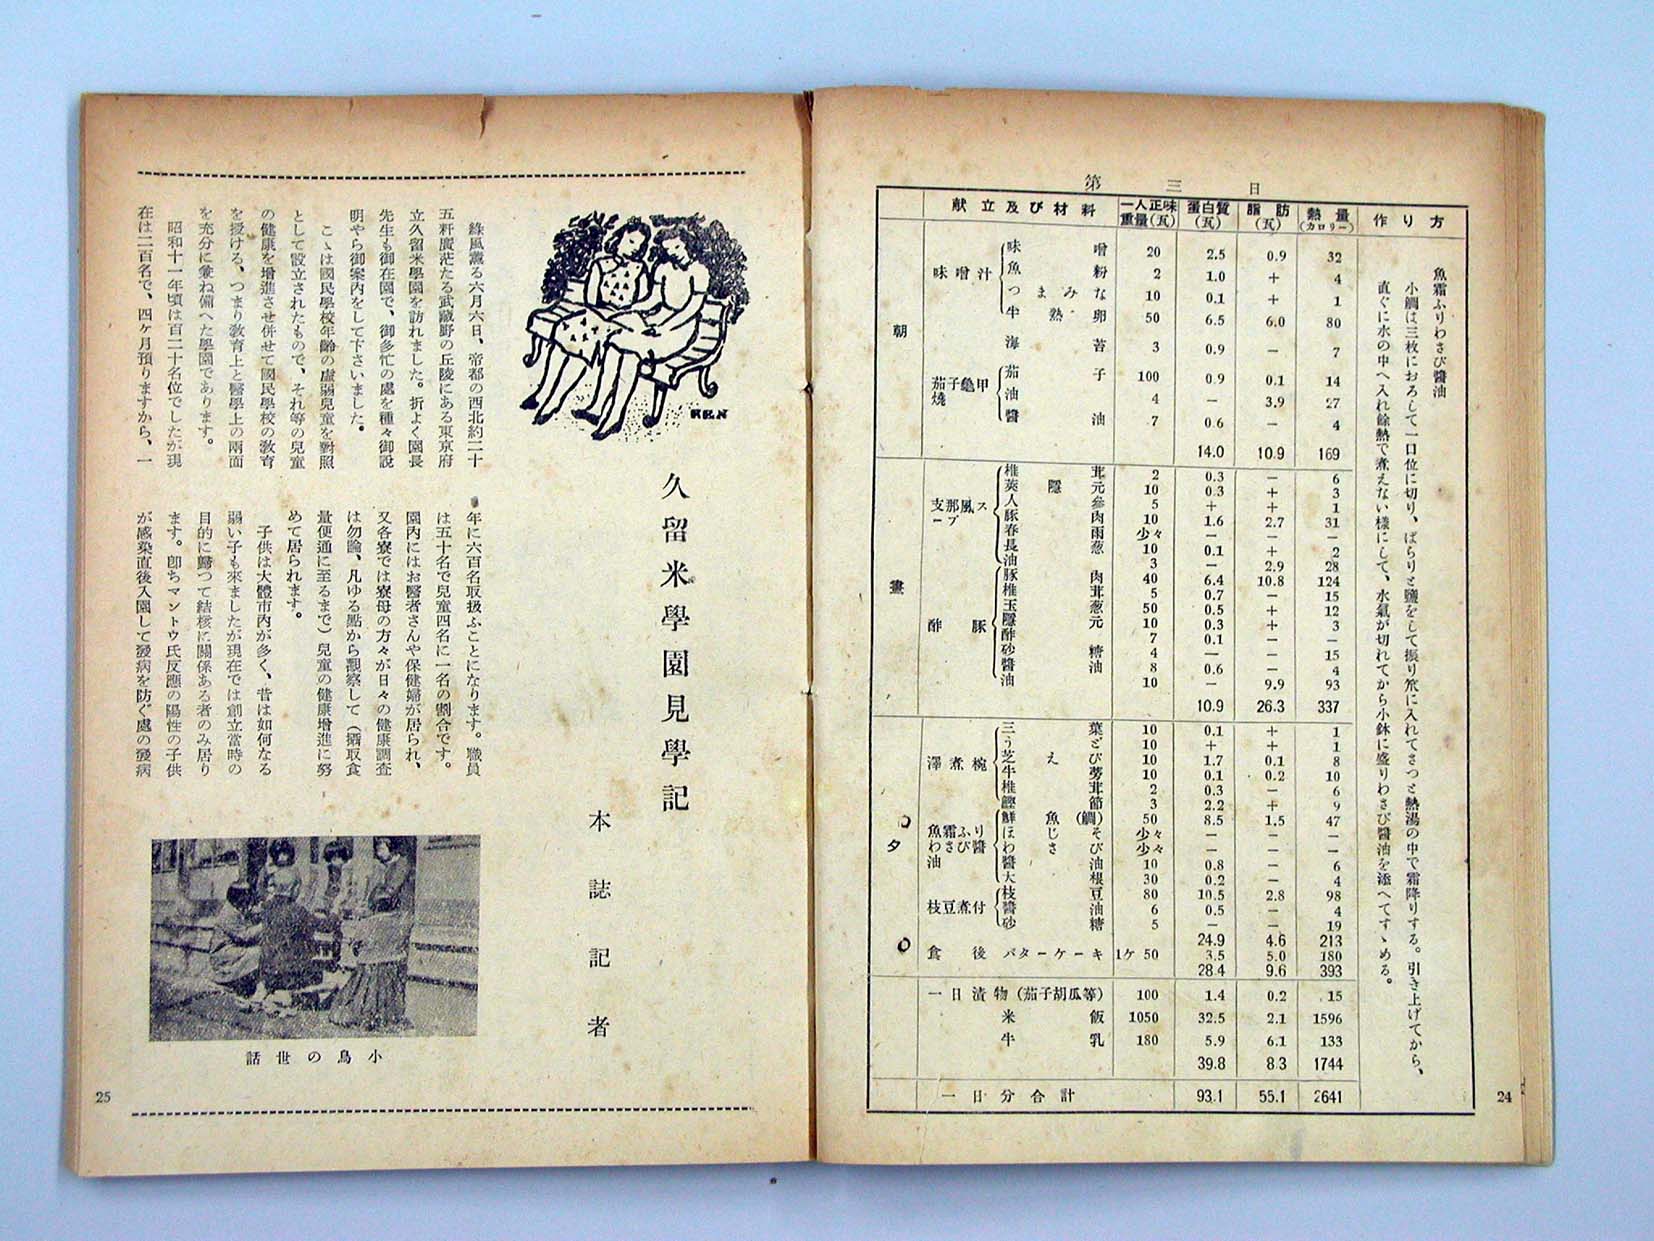 第三日
献立及び材料 一人正味重量(瓦) 蛋白質(瓦) 脂肪(瓦) 熱量(カロリー) 作り方
朝
味噌汁
味噌 20 2.5 0.9 32
魚粉 2 1.0 + 4
つまみな 10 0.1 + 1
半熟卵 50 6.5 6.0 80
海苔 3 0.9 — 7
茄子亀甲燒
茄子 100 0.9 0.1 14
油 4 — 3.9 27
醬油 7 0.6 — 4
14.0 10.9 169
晝
支那風スープ
椎茸 2 0.3 — 6
莢隠元 10 0.3 + 3
人參 5 + + 1
豚肉 10 1.6 2.7 31
春雨 少々 — — —
長葱 10 0.1 + 2
油 3 — 2.9 28
酢豚
豚肉 40 6.4 10.8 124
椎茸 5 0.7 — 15
玉葱 50 0.5 + 12
隠元 10 0.3 + 3
酢 7 0.1 — —
砂糖 4 — — 15
醬油 8 0.6 — 4
油 10 — 9.9 93
10.9 26.3 337
夕
澤煮椀
三葉 10 0.1 + 1
うど 10 + + 1
芝えび 10 1.7 0.1 8
牛蒡 10 0.1 0.2 10
椎茸 2 0.3 — 6
鰹節 3 2.2 + 9
魚霜ふりわさび醬油
鮮魚(鯛) 50 8.5 1.5 47
ほじそ 少々 — — —
わさび 少々 — — —
醬油 10 0.8 — 6
大根 30 0.2 — 4
枝豆煮付
枝豆 80 10.5 2.8 98
醬油 6 0.5 — 4
砂糖 5 — — 19
24.9 4.6 213
食後 バターケーキ 1ケ 50 3.5 5.0 180
28.4 9.6 393
一日漬物(茄子胡瓜等) 100 1.4 0.2 15
米飯 1050 32.5 2.1 1596
牛乳 180 5.9 6.1 133
39.8 8.3 1744
一日分合計 93.1 55.1 2641
魚霜ふりわさび醬油
小鯛は三枚におろして一口位に切り、ぱらりと鹽をして振り笊に入れてさつと熱湯の中で霜降りする。引き上げてから、
直ぐに水の中へ入れ餘熱で煮えない様にして、水氣が切れてから小鉢に盛りわさび醬油を添へてすゝめる。
24
久留米學園見學記
本誌記者
KEN
綠風薫る六月六日、帝都の西北約二十
五粁廣茫たる武藏野の丘陵にある東京府
立久留米學園を訪れました。折よく園長
先生も御在園で、御多忙の處を種々御說
明やら御案内をして下さいました。
こゝは國民學校年齡の虛弱兒童を對照
として設立されたもので、それ等の兒童
の健康を增進させ併せて國民學校の敎育
を授ける、つまり敎育上と醫學上の兩面
を充分に兼ね備へた學園であります。
昭和十一年頃は百二十名位でしたが現
在は二百名で、四ヶ月預りますから、一
年に六百名取扱ふことになります。職員
は五十名で兒童四名に一名の割合です。
園内にはお醫者さんや保健婦が居られ、
又各寮では寮母の方々が日々の健康調査
は勿論、凡ゆる點から觀察して(攝取食
量便通に至るまで)兒童の健康增進に努
めて居られます。
子供は大體市内が多く、昔は如何なる
弱い子も來ましたが現在では創立當時の
目的に歸つて結核に關係ある者のみ居り
ます。卽ちマントウ氏反應の陽性の子供
が感染直後入園して發病を防ぐ處の發病
小鳥の世話
25